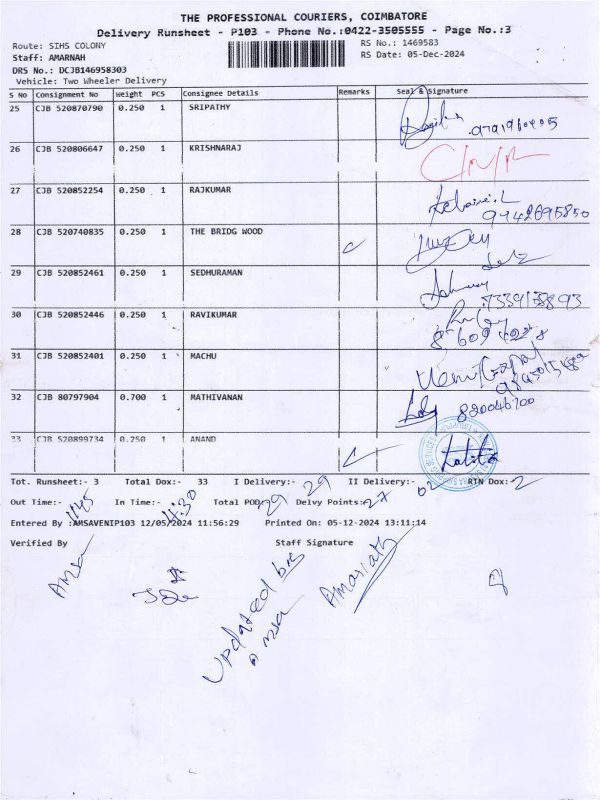 THE PROFESSIONAL COURIERS, COIMBATORE
Delivery Runsheet - P103 - Phone No.:0422-3505555 - Page No.:3
Route: SIHS COLONY RS No.: 1469583
Staff: AMARNAH RS Date: 05-Dec-2024
DRS No.: DCJB146958303
Vehicle: Two Wheeler Delivery
S No Consignment No Weight PCS Consignee Details Remarks Seal & Signature
25 CJB 520870790 0.250 1 SRIPATHY
26 CJB 520806647 0.250 1 KRISHNARAJ
27 CJB 520852254 0.250 1 RAJKUMAR
9942695850
28 CJB 520740835 0.250 1 THE BRIDG WOOD
29 CJB 520852461 0.250 1 SEDHURAMAN
30 CJB 520852446 0.250 1 RAVIKUMAR
31 CJB 520852401 0.250 1 MACHU
32 CJB 80797904 0.700 1 MATHIVANAN
33 CJB 520899734 0.250 1 ANAND
Tot. Runsheet:- 3 Total Dox:- 33 I Delivery:- 29 II Delivery:- 02 RTN Dox:- 2
Out Time:- 11:45 In Time:- 4:30 Total POD:- 29 Delvy Points:- 27
Entered By :AMSAVENIP103 12/05/2024 11:56:29 Printed On: 05-12-2024 13:11:14
Verified By Staff Signature
Amsa
Updated by
Amarnath